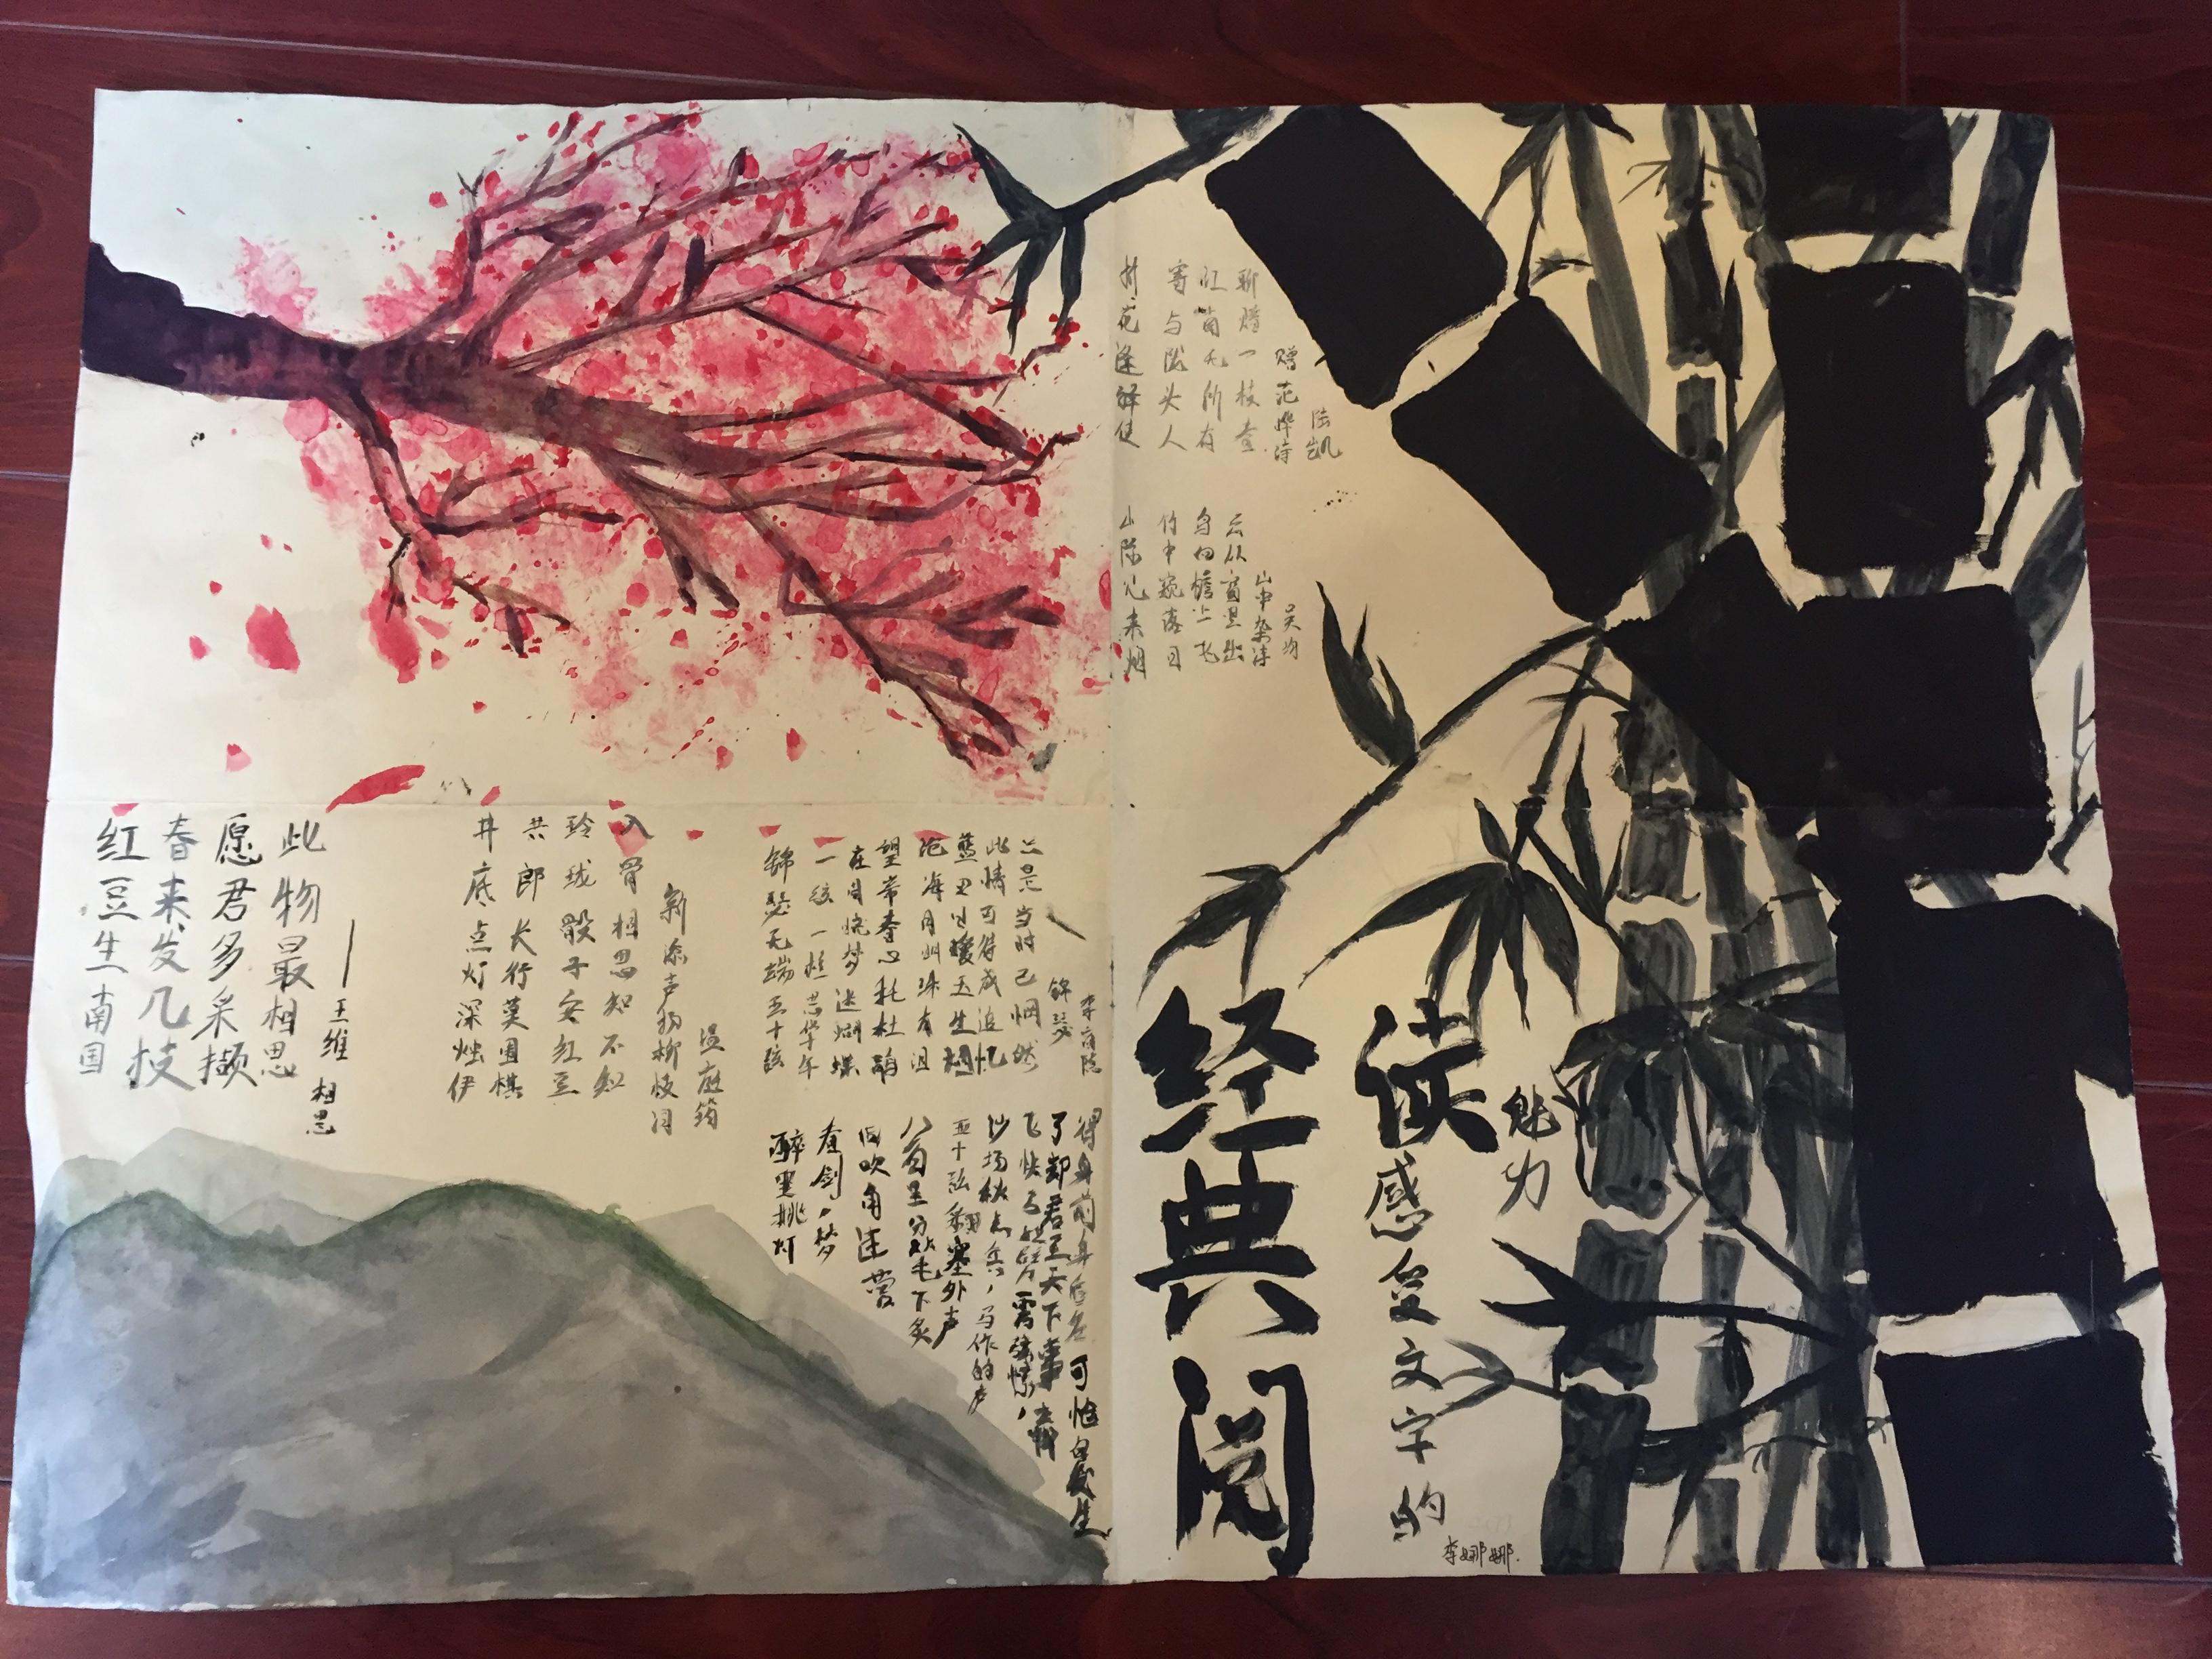 经典阅读
感受文字的
魅力
李娜娜
折花逢驿使
寄与陇头人
江南无所有
聊赠一枝春
赠范晔诗
陆凯
山际见来烟
竹中窥落日
鸟向檐上飞
云从窗里出
山中杂诗
吴均
红豆生南国
春来发几技
愿君多采撷
此物最相思
——王维 相思
井底点灯深烛伊
共郎长行莫围棋
玲珑骰子安红豆
入骨相思知不知
新添声杨柳枝词
温庭筠
锦瑟无端五十弦
一弦一柱思华年
晓梦迷蝴蝶
望帝春心托杜鹃
沧海月明珠有泪
蓝田日暖玉生烟
此情可待成追忆
只是当时已惘然
锦瑟
李商隐
醉里挑灯
看剑，梦
回吹角连营
八百里分麾下炙
五十弦翻塞外声
沙场秋点兵，马作的卢
飞快弓如霹雳弦惊，
了却君王天下事，赢
得身前身后名可怜白发生